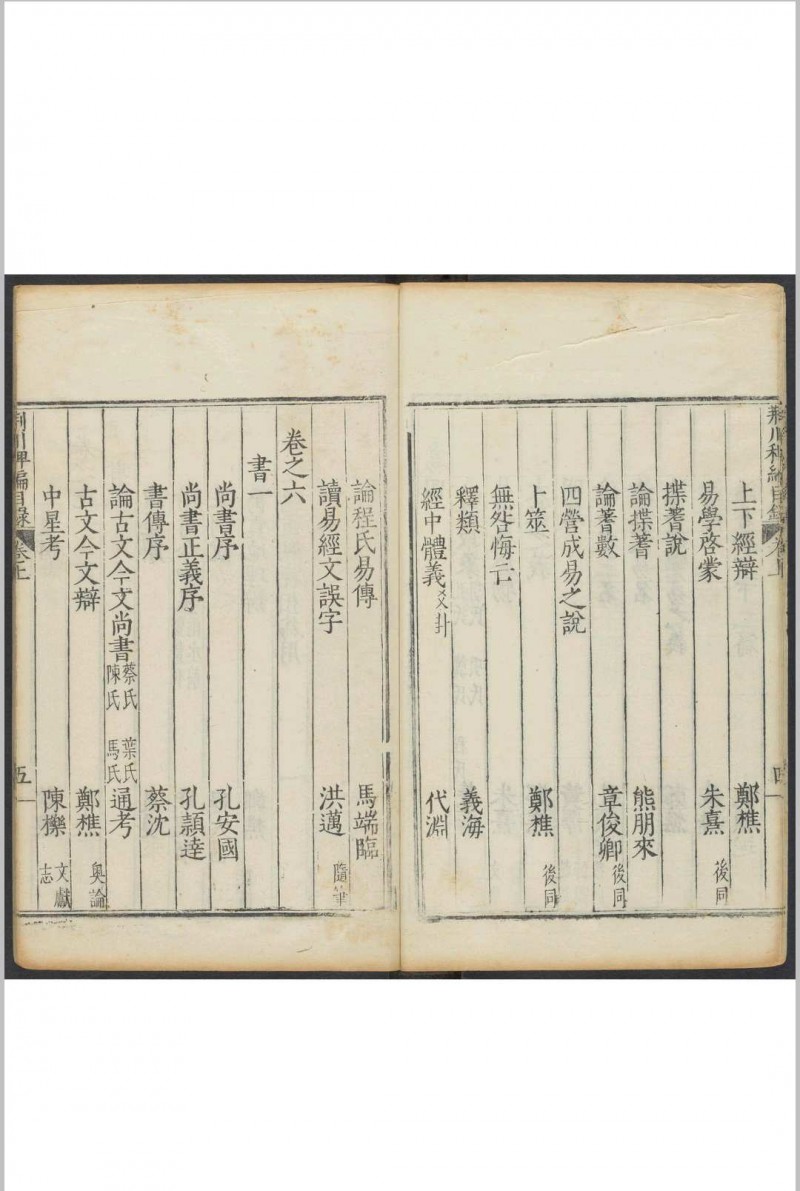 荆川稗編目錄 卷上 四
上下經辯 鄭樵
易學啓蒙 朱熹 後同
揲蓍說
論揲蓍 熊朋來
論蓍數 章俊卿 後同
四營成易之說
卜筮 鄭樵 後同
無咎悔亡
釋類 義海
經中體義 爻卦 代淵
論程氏易傳 馬端臨
讀易經文誤字 洪邁 隨筆
卷之六
書一
尚書序 孔安國
尚書正義序 孔穎達
書傳序 蔡沈
論古文今文尚書 蔡氏 陳氏 葉氏 馬氏 通考
古文今文辯 鄭樵 奧論
中星考 陳櫟 文獻志
荆川稗編目錄 卷上 五